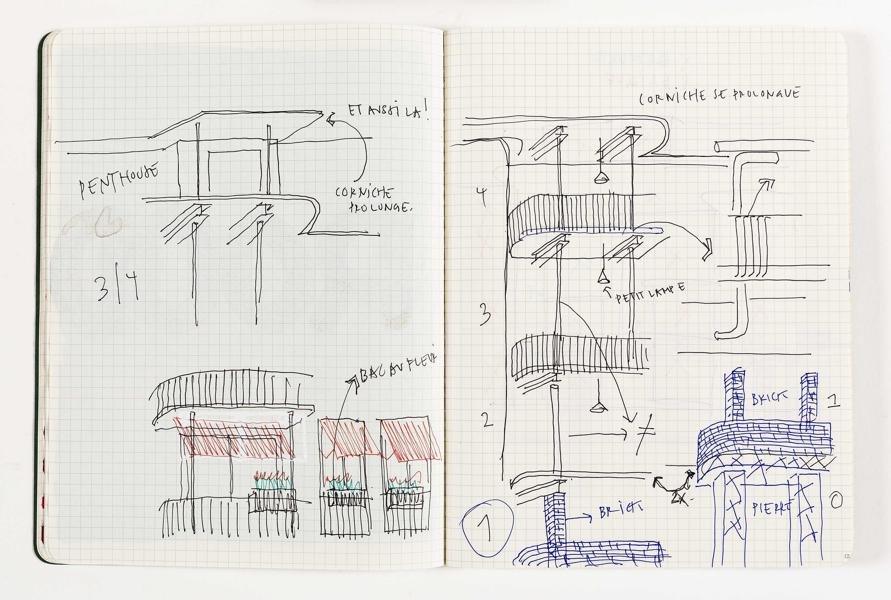 ET AUSSI LA!
PENTHOUSE
CORNICHE
PROLONGE.
3/4
CORNICHE SE PROLONGUE
4
PETIT LAMPE
3
2
≠
1
BRICK
BRICK
1
PIERRE
0